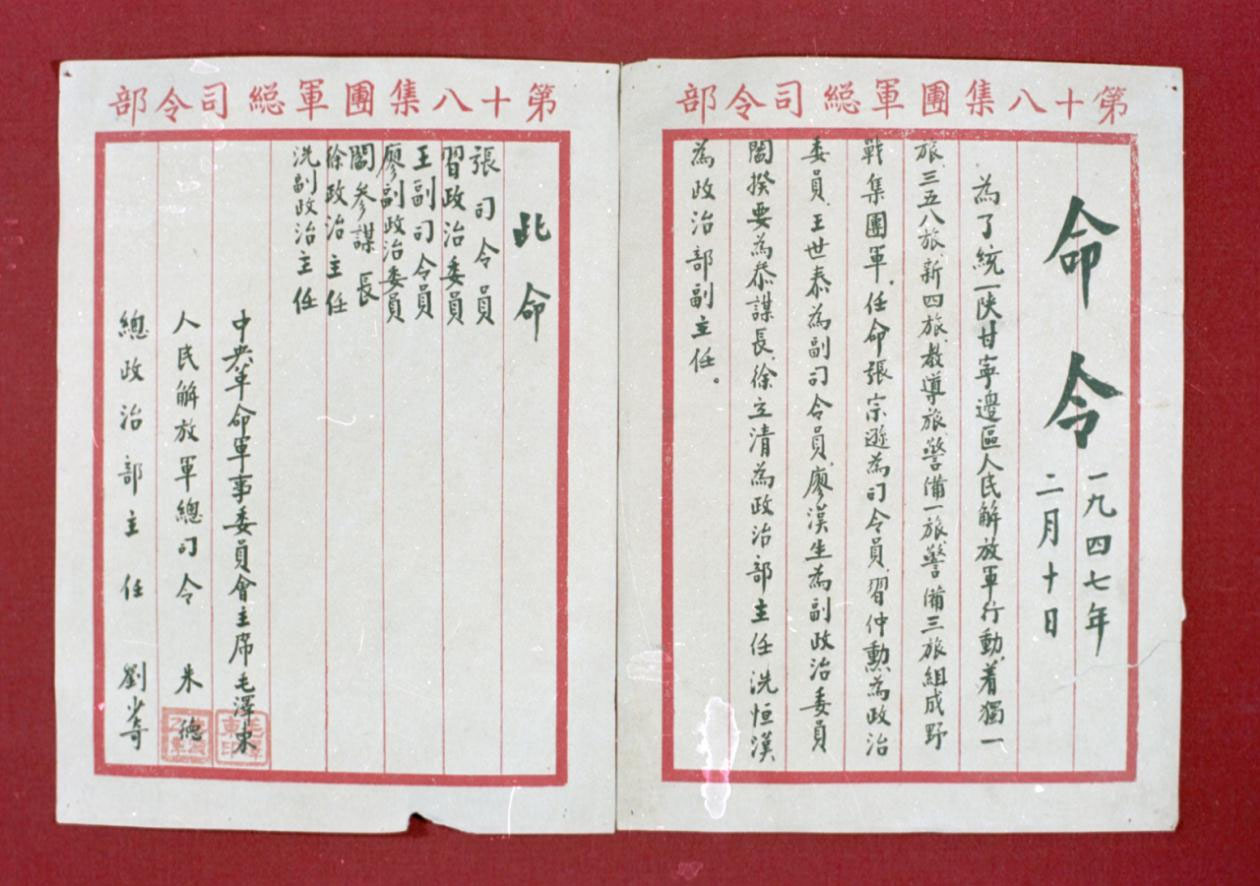 第十八集團軍總司令部
命令
一九四七年
二月十日
為了統一陝甘寧邊區人民解放軍行動、着獨一
旅、三五八旅、新四旅、教導旅、警備一旅、警備三旅組成野
戰集團軍、任命張宗遜為司令員、習仲勳為政治
委員、王世泰為副司令員、廖漢生為副政治委員
閻揆要為叅謀長、徐立清為政治部主任冼恒漢
為政治部副主任。
第十八集團軍總司令部
此命
張司令員
習政治委員
王副司令員
廖副政治委員
閻參謀長
徐政治主任
冼副政治主任
中央革命軍事委員會主席毛澤東
人民解放軍總司令 朱德
總政治部主任 劉少奇
毛澤東印